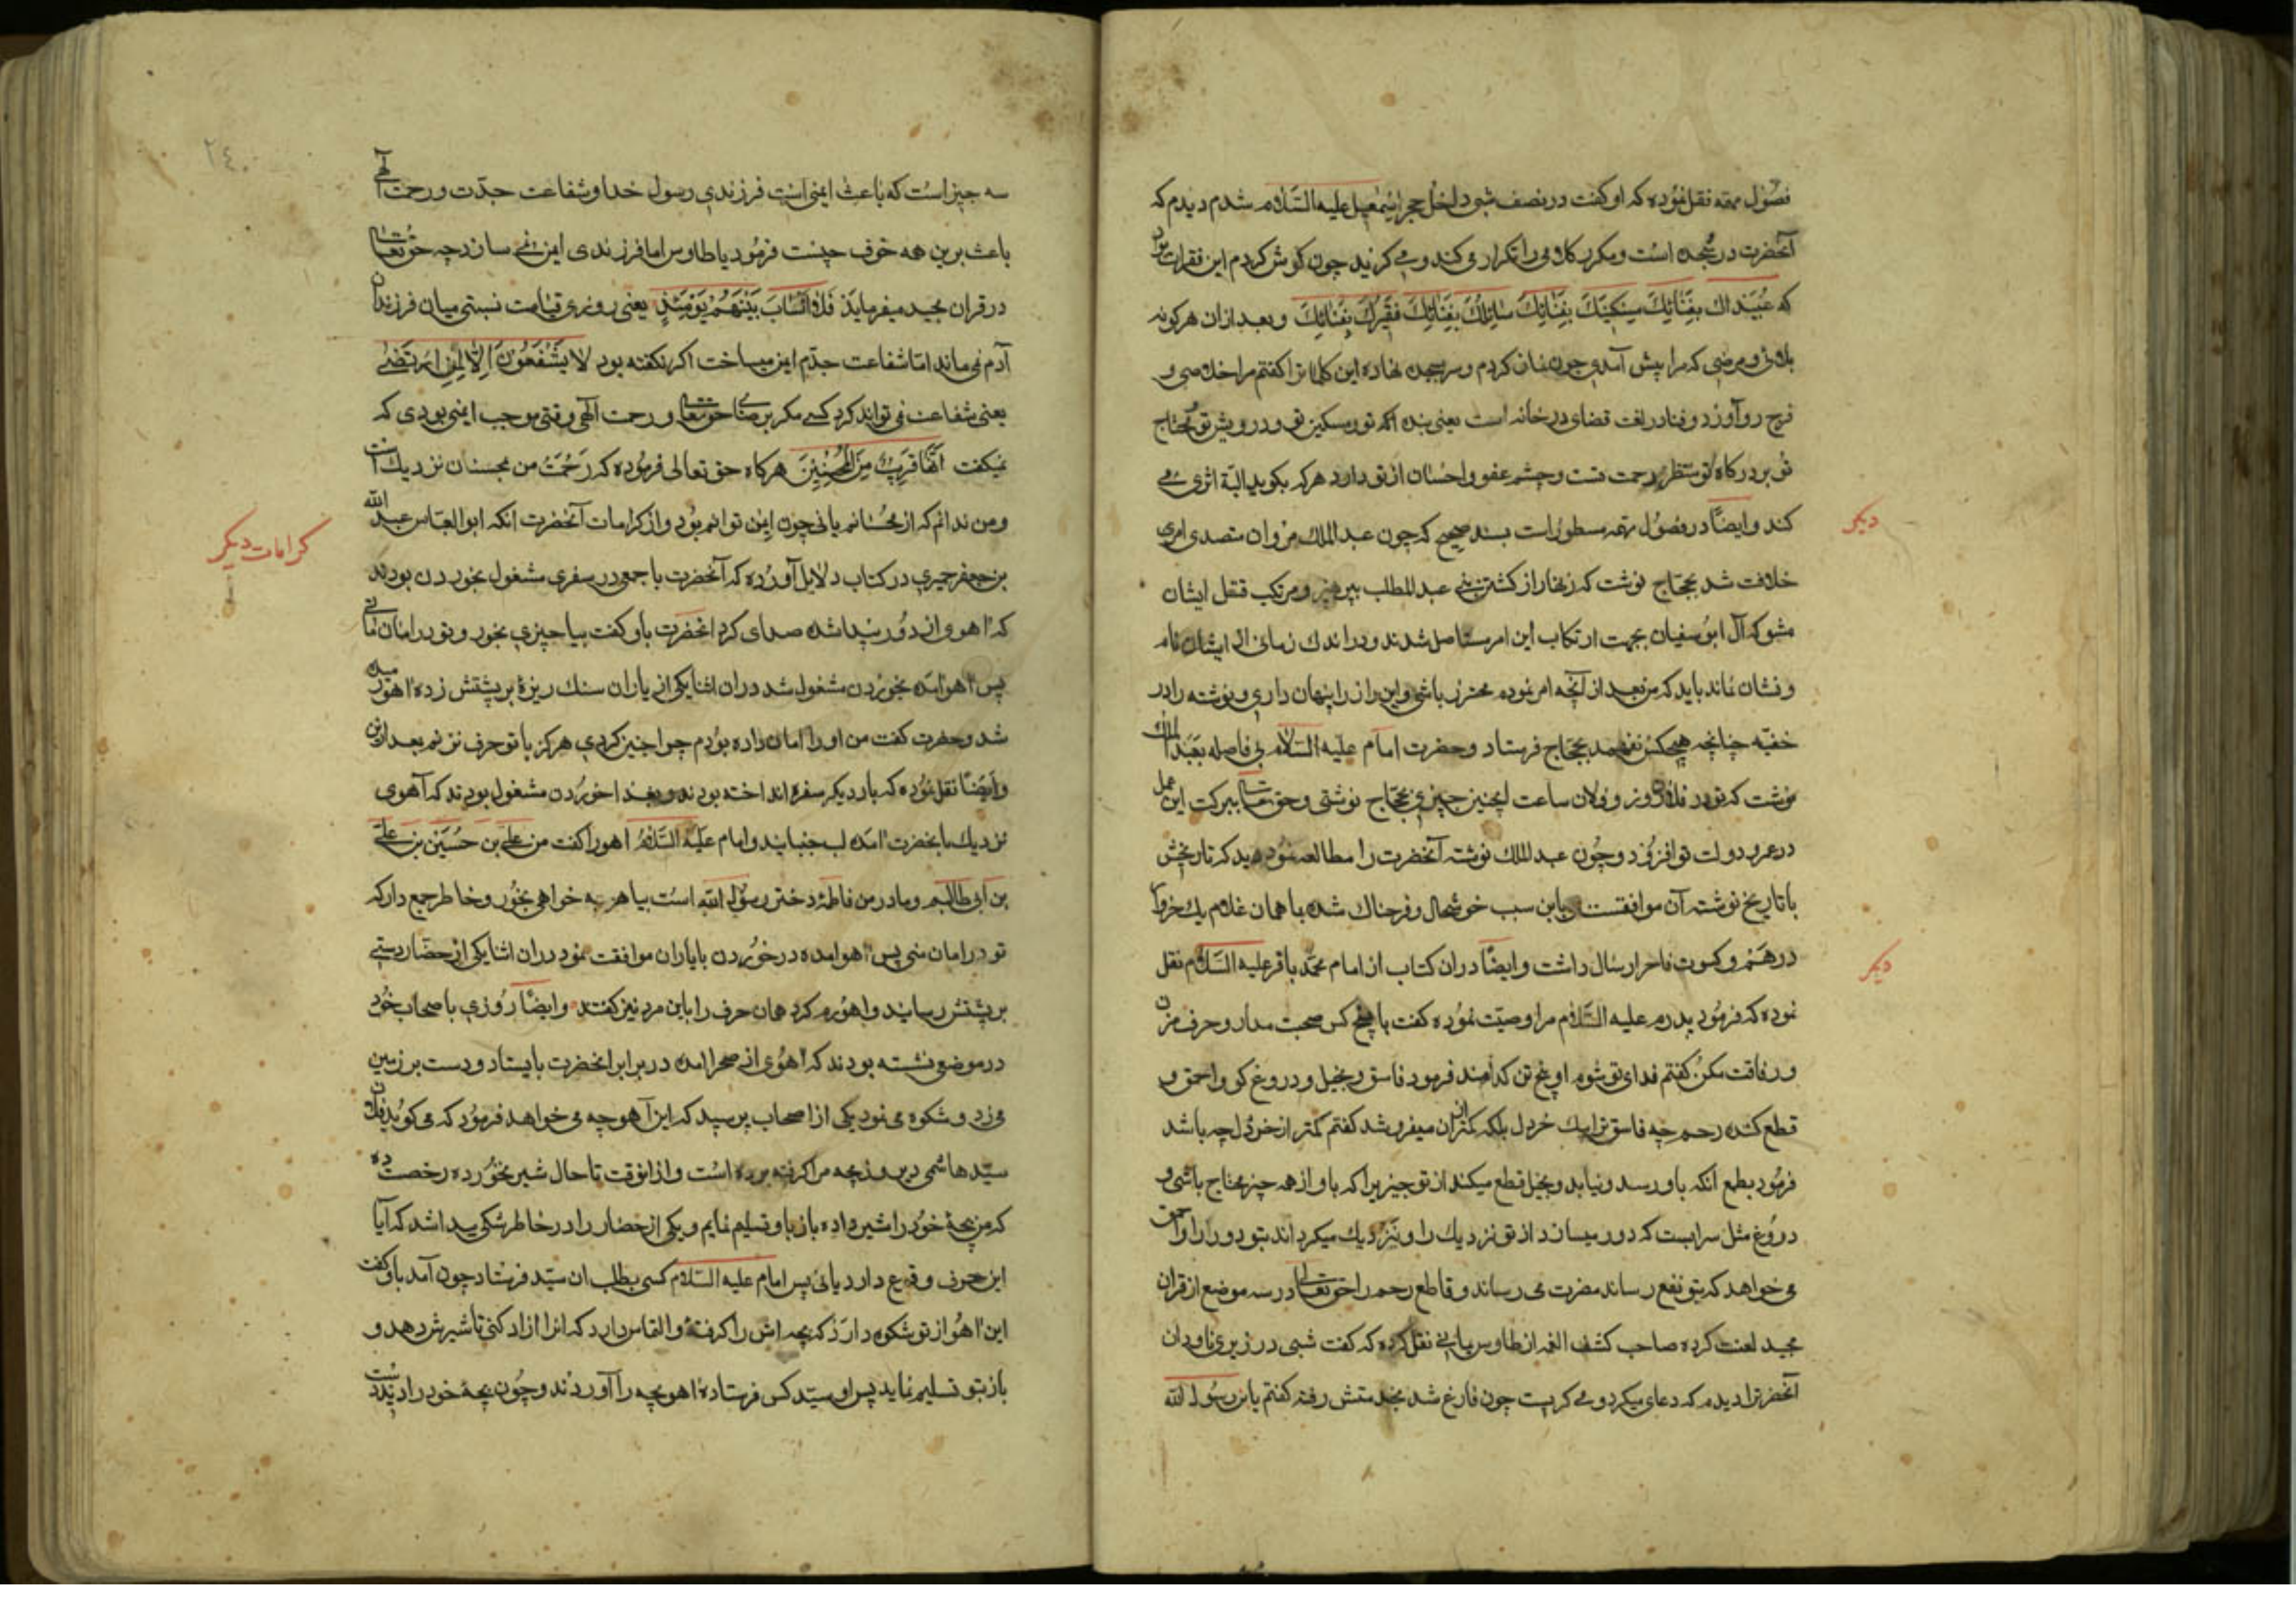 فصول مهمه نقل نموده که او کفت در نصف شبی داخل حجر اسمعیل علیه السلام شدم دیدم که
آنحضرت در سجده است و مکرر کلامی را تکرار می کند و می کرید چون کوش کردم این فقرات بود
که عُبَیدك بِفَنائِكَ مِسکینكَ بِفَنائِكَ سائِلُكَ بِفَنائِكَ فَقیرُكَ بِفَنائِكَ و بعد ازان هر کونه
بلائی و مرضی که مرا پیش آمدی چون نماز کردم و سر بسجده نهاده این کلماترا کفتم مرا خلاصی و
فرج رو آورد و فنا در لغت فضای در خانه است یعنی بنده تو و مسکین تو و درویش تو محتاج
تو بر درکاه تو منتظر رحمت تست و چشم عفو و احسان از تو دارد هر که بکوید البتة اثری می
کند و ایضًا در فصول مهمه مسطور است بسند صحیح که چون عبد الملك مروان متصدی امری
خلافت شد بحجاج نوشت که زنهار از کشتن بنی عبد المطلب بپرهیز و مرتکب قتل ایشان
مشو که آل ابو سفیان بجهت ارتکاب این امر مستاصل شدند و در اندك زمانی از ایشان نام
و نشان نماند باید که من بعد از آنچه امر نموده محترز باشی و این راز را پنهان داری و نوشته را در
خفیه چنانچه هیچکس نفهمد بحجاج فرستاد و حضرت امام علیه السلام بی فاصله بعبد الملك
نوشت که تو در فلان روز و فلان ساعت اینچنین چیزی بحجاج نوشتی و حق تعالی ببرکت این عمل
در عمر و دولت تو افزود و چون عبد الملك نوشته آنحضرت را مطالعه نمود دید که تاریخش
با تاریخ نوشته آن موافقست باین سبب خوشحال و فرحناك شده با همان غلام يك خروار
درهم و کسوت فاخر ارسال داشت و ایضًا دران کتاب از امام محمد باقر علیه السلام نقل
نموده که فرمود پدرم علیه السلام مرا وصیت نموده کفت با پنج کس صحبت مدار و حرف مزن
و رفاقت مکن کفتم فدای تو شوم او پنج تن کدامند فرمود فاسق و بخیل و دروغ کو و احمق و
قطع کننده رحم چه فاسق ترا بيك خردل بلکه کمتر ازان میفروشد کفتم کمتر از خردل چه باشد
فرمود بطمع آنکه باو رسد و نیابد و بخیل قطع میکند از تو چیزیرا که باو از همه چیز محتاج باشی و
دروغ مثل سرابست که دور میسازد از تو نزدیك را و نزدیك میکرداند بتو دور را و احمق
می خواهد که بتو نفع رساند مضرت می رساند و قاطع رحم را حق تعالی در سه موضع از قران
مجید لعنت کرده صاحب کشف الغمه از طاوس یمانی نقل کرده که کفت شبی در زیر ناودان
آنحضرترا دیدم که دعای میکرد و می کریست چون فارغ شد بخدمتش رفته کفتم یابن رسول الله
دیکر
دیکر
۲۴۰
سه چیز است که باعث ایمنی است فرزندی رسول خدا و شفاعت جدّت و رحمت الهی
باعث برین همه خوف چیست فرمود یا طاوس اما فرزندی ایمن نمی سازد چه حق تعالی
در قران مجید میفرماید فَلا اَنسابَ بَینَهُم یَومَئِذٍ یعنی روزی قیامت نسبتی میان فرزندان
آدم نمی ماند اما شفاعت جدّم ایمن میساخت اکر نکفته بود لا یَشفَعُونَ اِلّا لِمَنِ ارتَضی
یعنی شفاعت نمی تواند کرد کسی مکر برضای حق تعالی و رحمت الهی وقتی موجب ایمنی بودی که
نمیکفت انها قریب من المحسنین هر کاه حق تعالی فرموده که رحمت من بمحسنان نزدیك است
و من ندانم که از محسنانم یا نی چون ایمن توانم بود و از کرامات آنحضرت انکه ابو العباس عبد الله
بن جعفر حمیری در کتاب دلایل آورده که آنحضرت با جمعی در سفری مشغول بخوردن بودند
که اهوی از دور پیدا شد صدای کرد انحضرت باو کفت بیا چیزی بخور و تو در امان مائی
پس اهو آمده بخوردن مشغول شد دران اثنا یکی از یاران سنك ریزهٔ بر پشتش زده اهو رمیده
شد و حضرت کفت من او را امان داده بودم چرا چنین کردی هرکز با تو حرف نزنم بعد ازین
و ایضًا نقل نموده که بار دیکر سفره انداخته بودند و بغذا خوردن مشغول بودند که آهوی
نزدیك بانحضرت آمده لب جنبانید و امام علیه السلام اهو را کفت من علی بن حسین بن علی
بن ابی طالبم و مادر من فاطمه دختر رسول الله است بیا هر چه خواهی بخور و خاطر جمع دار که
تو در امان منی پس اهو امده در خوردن با یاران موافقت نمود دران اثنا یکی از حضار دستی
بر پشتش رسانید و اهو رم کرد همان حرف را باین مرد نیز کفتند و ایضًا روزی با صحاب خود
در موضع نشسته بودند که اهوی از صحرا امده در برابر انحضرت بایستاد و دست بر زمین
می زد و شکوه می نمود یکی از اصحاب پرسید که این آهو چه می خواهد فرمود که می کوید فلان
سیّد هاشمی دیروز بچه مرا کرفته برده است و از انوقت تا حال شیر نخورده رخصت ده
که من بچهٔ خود را شیر داده باز باو تسلیم نمایم و یکی از حضار را در خاطر شکی پیدا شد که آیا
این حرف وقوع دارد یا نی پس امام علیه السلام کسی بطلب ان سیّد فرستاد چون آمد باو کفت
این اهو از تو شکوه دارد که بچه اش را کرفتهٔ و التماس دارد که انرا ازاد کنی تا شیرش دهد و
باز بتو تسلیم نماید پس او سیّد کس فرستاده اهو بچه را آوردند و چون بچهٔ خود را دید دست
کرامات دیکر